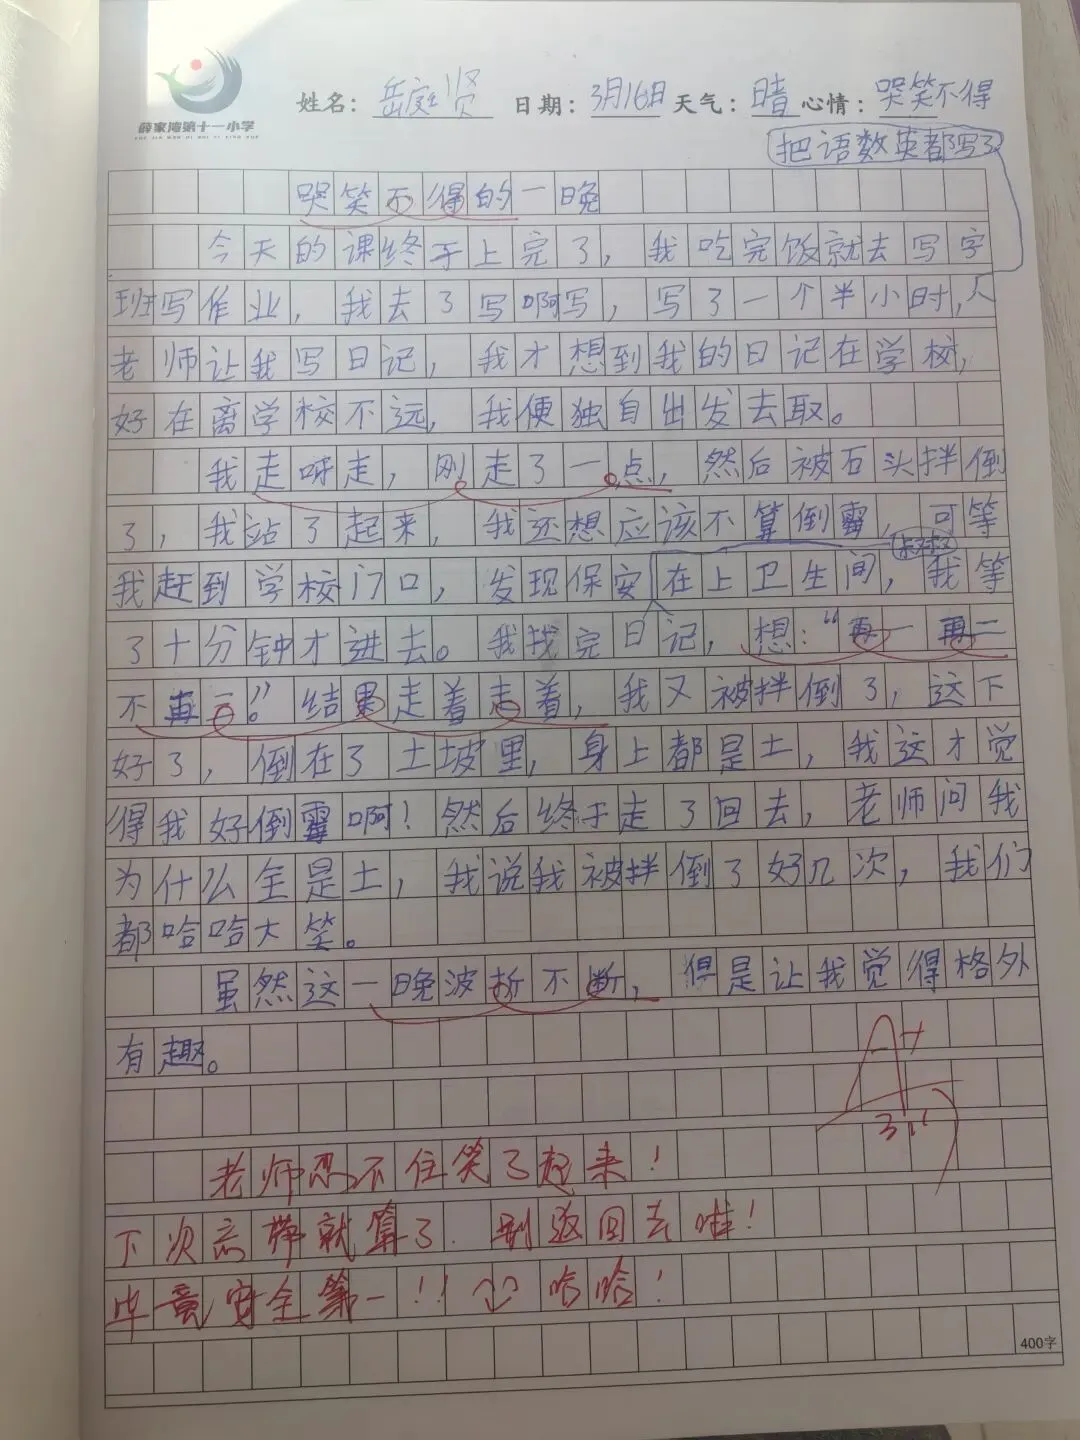 薛家湾第十一小学
姓名：岳庭贤 日期：3月16日 天气：晴 心情：哭笑不得
把语数英都写了
哭笑不得的一晚
今天的课终于上完了，我吃完饭就去写字
班写作业，我去了写啊写，写了一个半小时，
老师让我写日记，我才想到我的日记在学校，
好在离学校不远，我便独自出发去取。
我走呀走，刚走了一点，然后被石头拌倒
了，我站了起来，我还想应该不算倒霉，可等
我赶到学校门口，发现保安在上卫生间，我等
了十分钟才进去。我找完日记，想：“再一再二
不再三”。结果走着走着，我又被拌倒了，这下
好了，倒在了土坡里，身上都是土，我这才觉
得我好倒霉啊！然后终于走了回去，老师问我
为什么全是土，我说我被拌倒了好几次，我们
都哈哈大笑。
虽然这一晚波折不断，但是让我觉得格外
有趣。
A+
老师忍不住笑了起来！
下次忘带就算了.别返回去啦！
毕竟安全第一！！哈哈！
400字